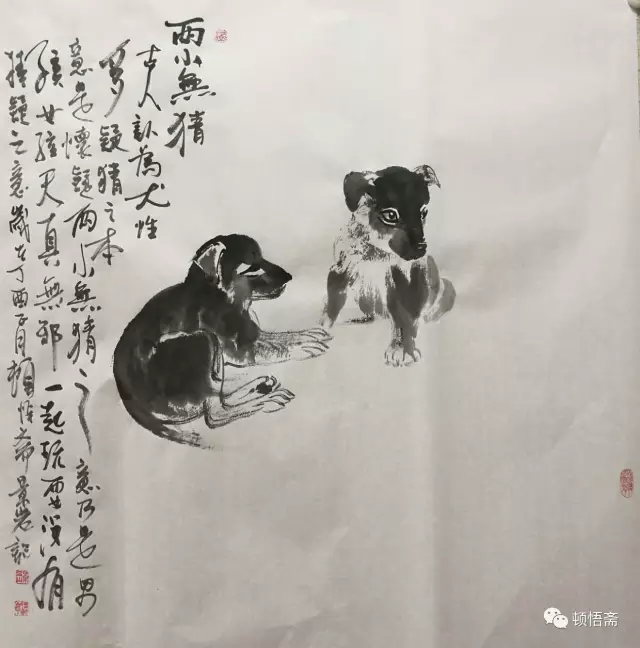 两小無猜
古人認為犬性
多疑猜之本
意是懷疑两小無猜之意乃是男
孩女孩天真無邪一起玩耍没有
猜疑之意歲在丁酉月頓悟斋景岩記
顿悟斋